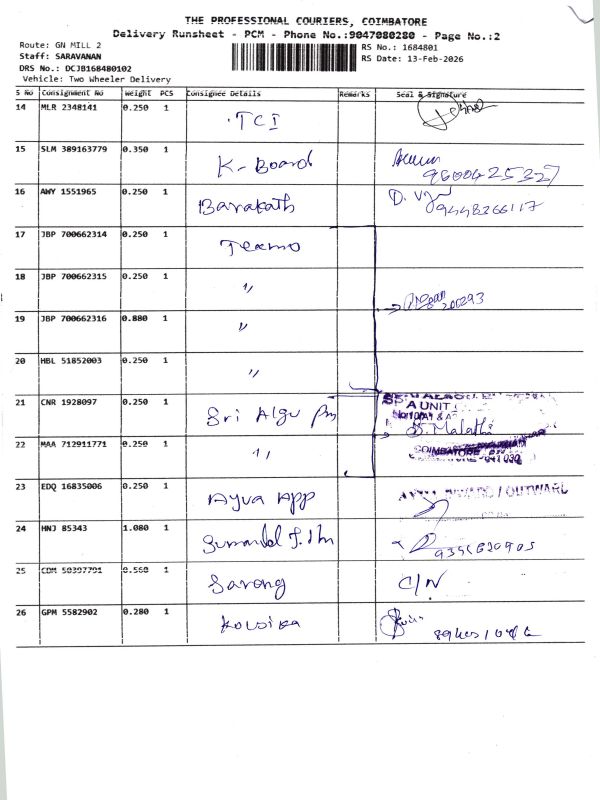 THE PROFESSIONAL COURIERS, COIMBATORE
Delivery Runsheet - PCM - Phone No.:9047080280 - Page No.:2
Route: GN MILL 2
RS No.: 1684801
Staff: SARAVANAN
RS Date: 13-Feb-2026
DRS No.: DCJB168480102
Vehicle: Two Wheeler Delivery
S No Consignment No Weight PCS Consignee Details Remarks Seal & Signature
14 MLR 2348141 0.250 1 TCI
15 SLM 389163779 0.350 1 K-Board 9600425327
16 AWY 1551965 0.250 1 Barakath D. 9448366117
17 JBP 700662314 0.250 1 Texmo
18 JBP 700662315 0.250 1 "
19 JBP 700662316 0.880 1 "
20 HBL 51852003 0.250 1 "
21 CNR 1928097 0.250 1 Sri Algu A UNIT
22 MAA 712911771 0.250 1 " S. Malathi
COIMBATORE
23 EDQ 16835006 0.250 1 Ayva App INWARD / OUTWARD
24 HNJ 85343 1.080 1
25 CDM 50397791 0.560 1 Sarong C/N
26 GPM 5582902 0.280 1 Kousika